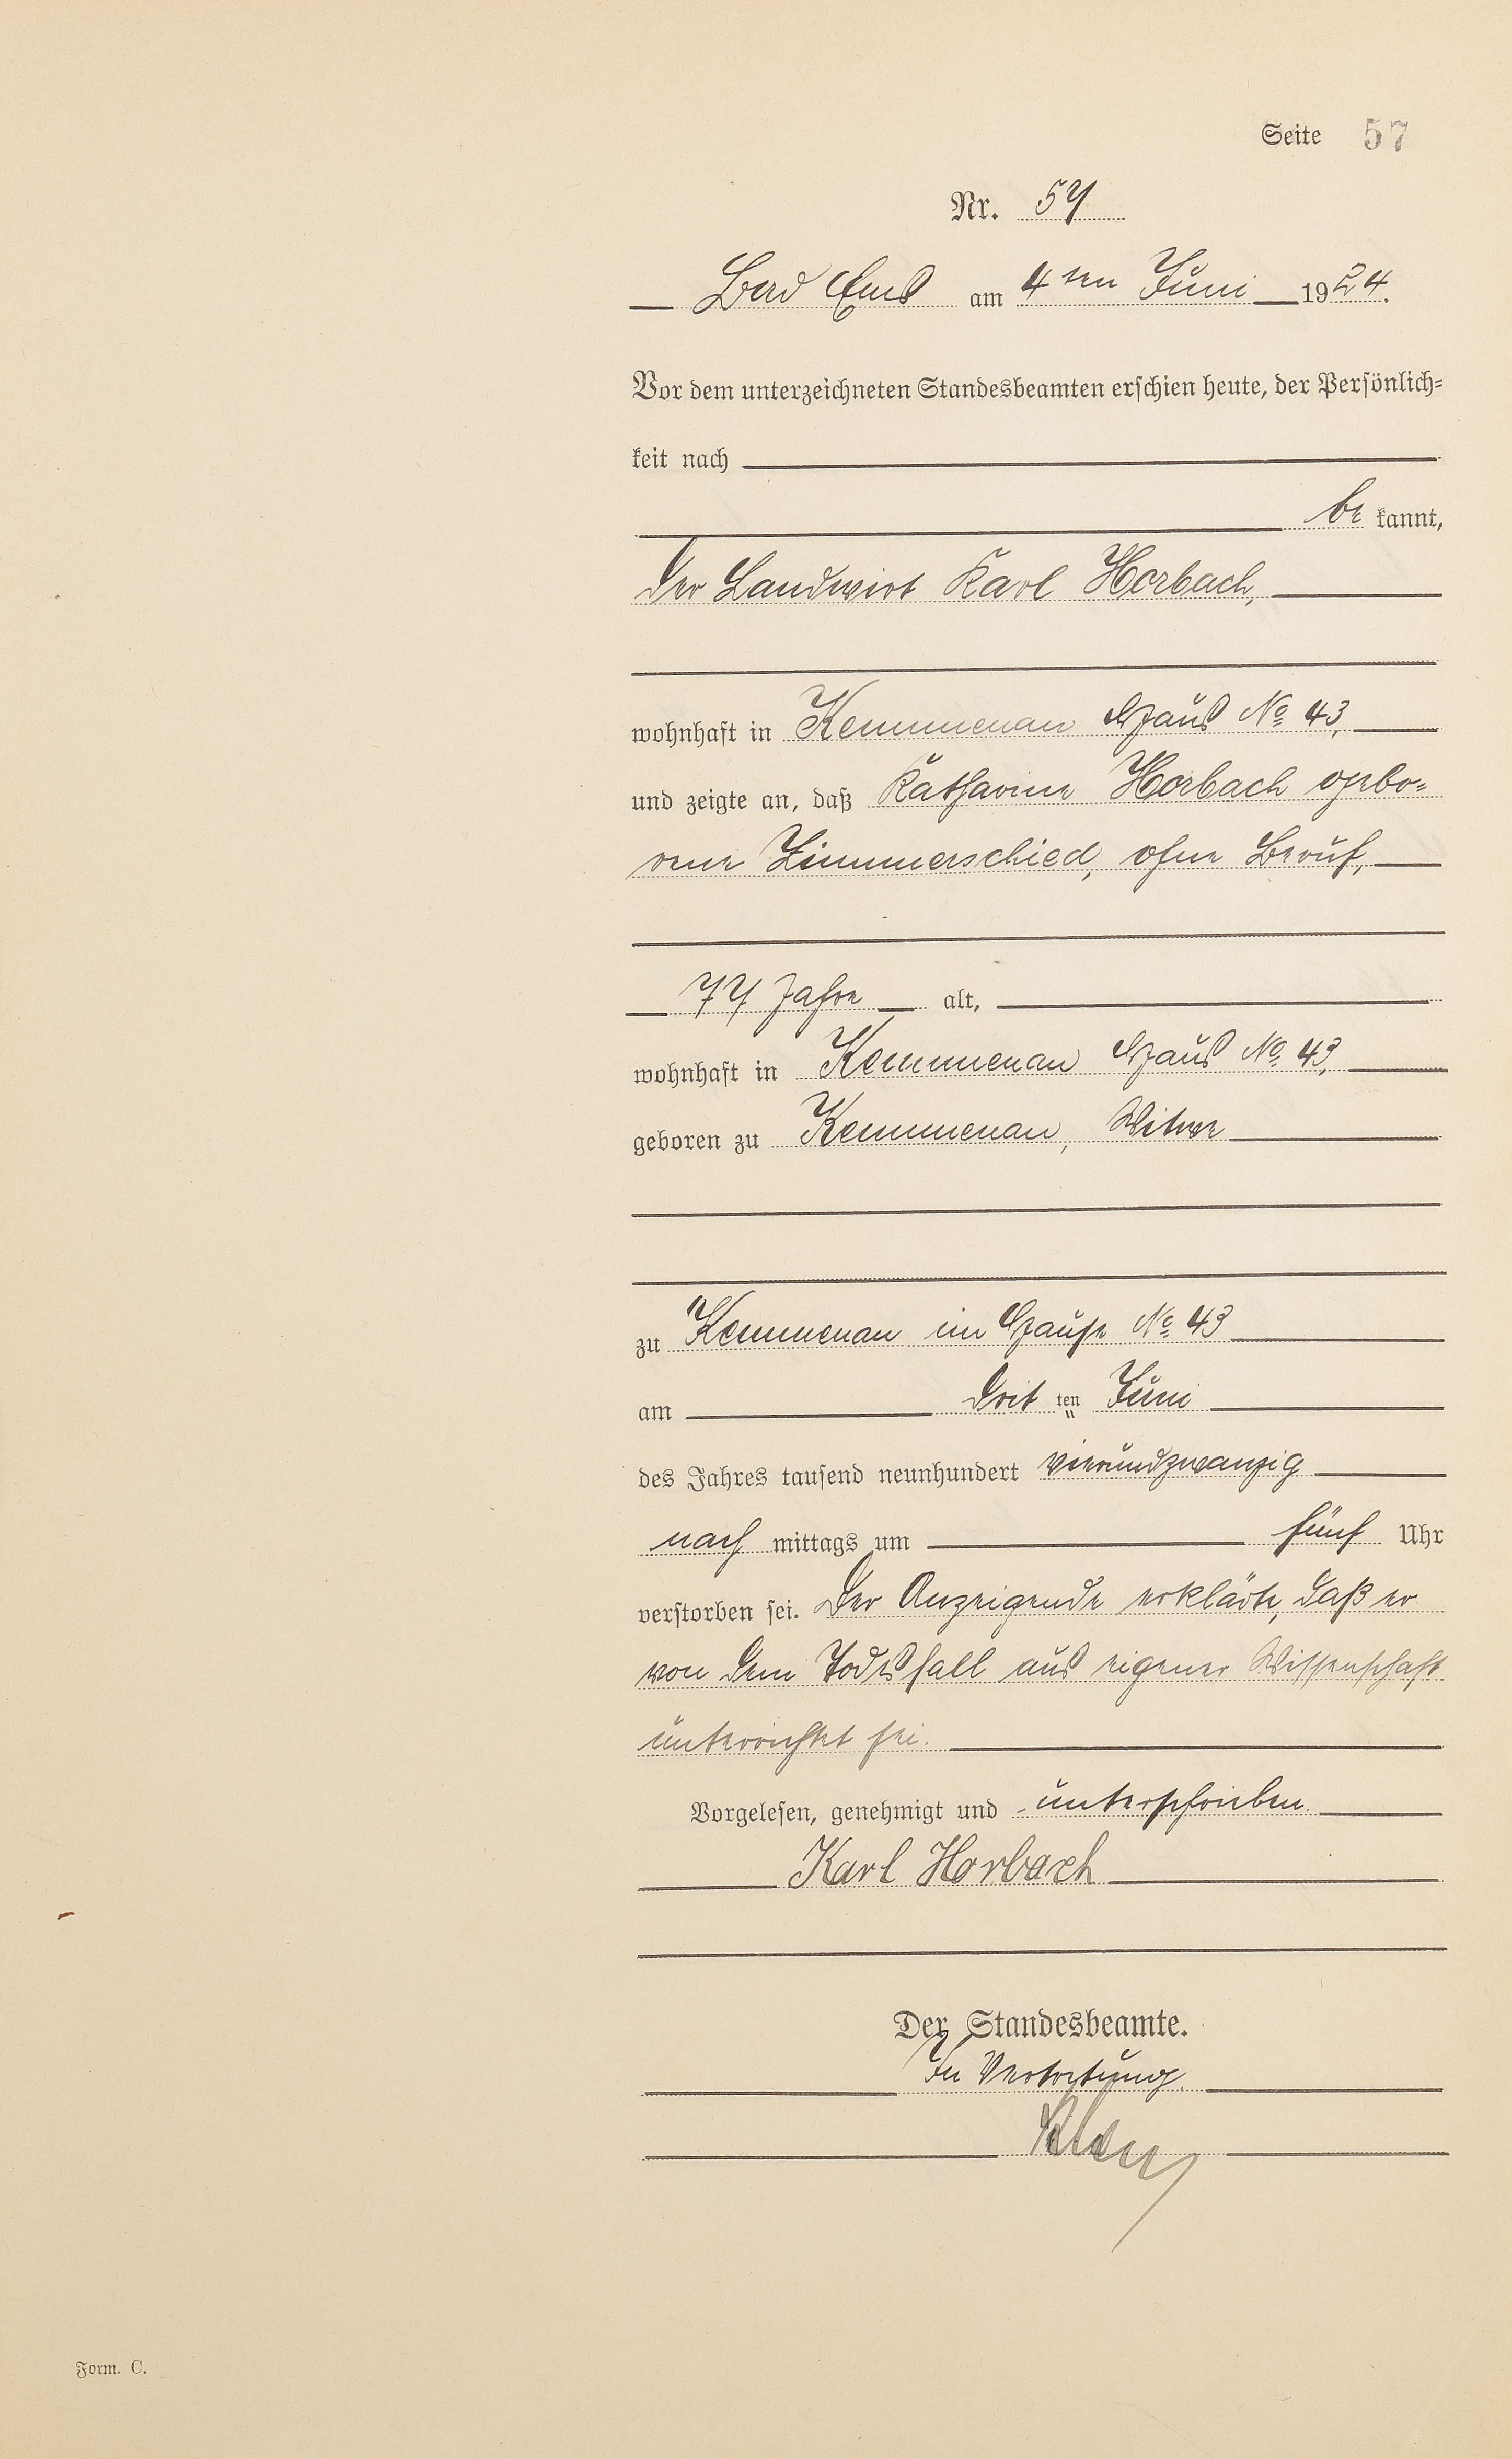 Seite 57
Nr. 57
Bad Ems am 4ten Juni 1924.
Vor dem unterzeichneten Standesbeamten erschien heute, der Persönlich=
keit nach
be kannt,
der Landwirt Karl Horbach,
wohnhaft in Kemmenau Haus No 43,
und zeigte an, daß Katharine Horbach gebo=
rene Zimmerschied, ohne Beruf,
77 Jahre alt,
wohnhaft in Kemmenau Haus No 43,
geboren zu Kemmenau, Witwe
zu Kemmenau im Hause No 43
am dritten Juni
des Jahres tausend neunhundert vierundzwanzig
nach mittags um fünf Uhr
verstorben sei. Der Anzeigende erklärte, daß er
von dem Todesfall aus eigener Wissenschaft
unterrichtet sei.
Vorgelesen, genehmigt und unterschrieben.
Karl Horbach
Der Standesbeamte.
In Vertretung.
Form. C.